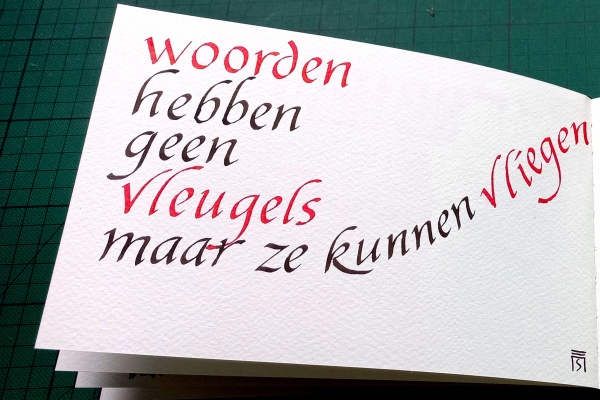 woorden
hebben
geen
vleugels
maar ze kunnen vliegen